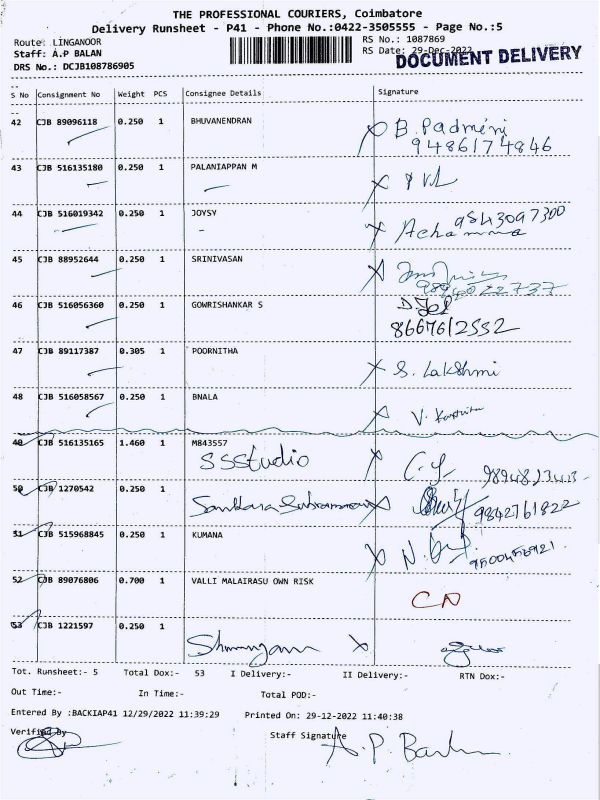 THE PROFESSIONAL COURIERS, Coimbatore
Delivery Runsheet - P41 - Phone No.:0422-3505555 - Page No.:5
Route: LINGANOOR
RS No.: 1087869
Staff: A.P BALAN
RS Date: 29-Dec-2022
DOCUMENT DELIVERY
DRS No.: DCJB108786905
S No Consignment No Weight PCS Consignee Details Signature
42 CJB 89096118 0.250 1 BHUVANENDRAN B. Padmini
9486174846
43 CJB 516135180 0.250 1 PALANIAPPAN M
44 CJB 516019342 0.250 1 JOYSY 9543097300
Achamma
45 CJB 88952644 0.250 1 SRINIVASAN
9894022737
46 CJB 516056360 0.250 1 GOWRISHANKAR S
8667612552
47 CJB 89117387 0.305 1 POORNITHA S. Lakshmi
48 CJB 516058567 0.250 1 BNALA
49 CJB 516135165 1.460 1 M843557
SSStudio
50 CJB 1270542 0.250 1
9842761822
51 CJB 515968845 0.250 1 KUMANA
52 CJB 89076806 0.700 1 VALLI MALAIRASU OWN RISK
53 CJB 1221597 0.250 1
Tot. Runsheet:- 5 Total Dox:- 53 I Delivery:- II Delivery:- RTN Dox:-
Out Time:- In Time:- Total POD:-
Entered By :BACKIAP41 12/29/2022 11:39:29 Printed On: 29-12-2022 11:40:38
Verified By Staff Signature
A.P.